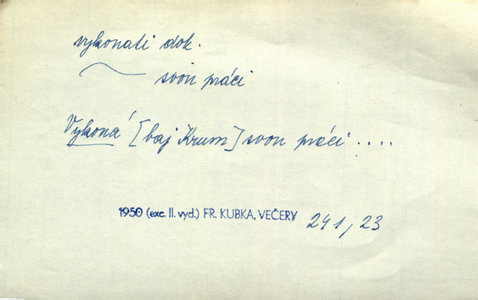 vykonati dok.
svou práci
Vykoná [baj Krum] svou práci ....
1950 (exc. II. vyd.) FR. KUBKA, VEČERY 241, 23